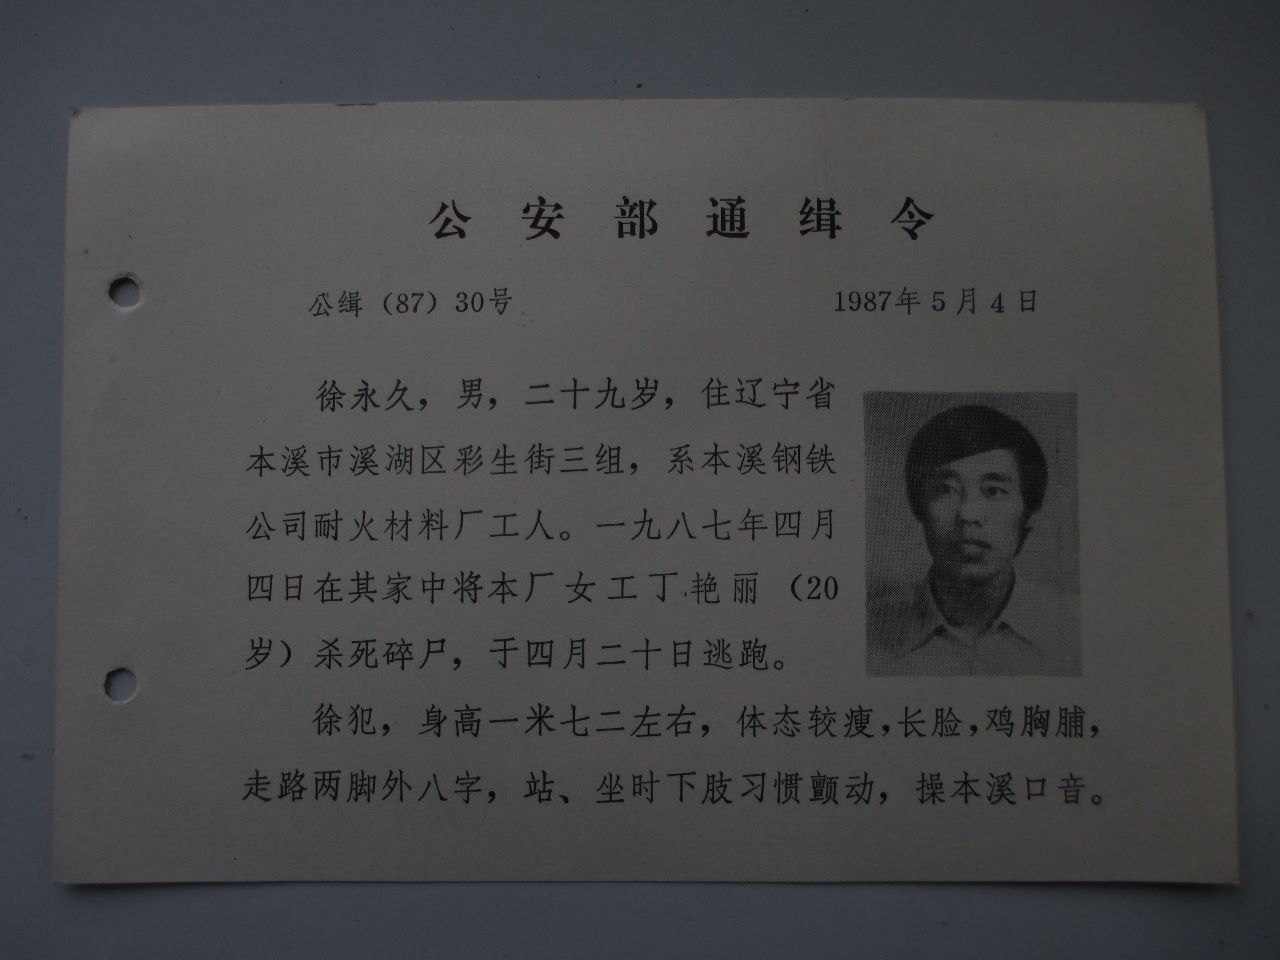 公安部通缉令
公缉（87）30号 1987年5月4日
徐永久，男，二十九岁，住辽宁省
本溪市溪湖区彩生街三组，系本溪钢铁
公司耐火材料厂工人。一九八七年四月
四日在其家中将本厂女工丁艳丽（20
岁）杀死碎尸，于四月二十日逃跑。
徐犯，身高一米七二左右，体态较瘦，长脸，鸡胸脯，
走路两脚外八字，站、坐时下肢习惯颤动，操本溪口音。